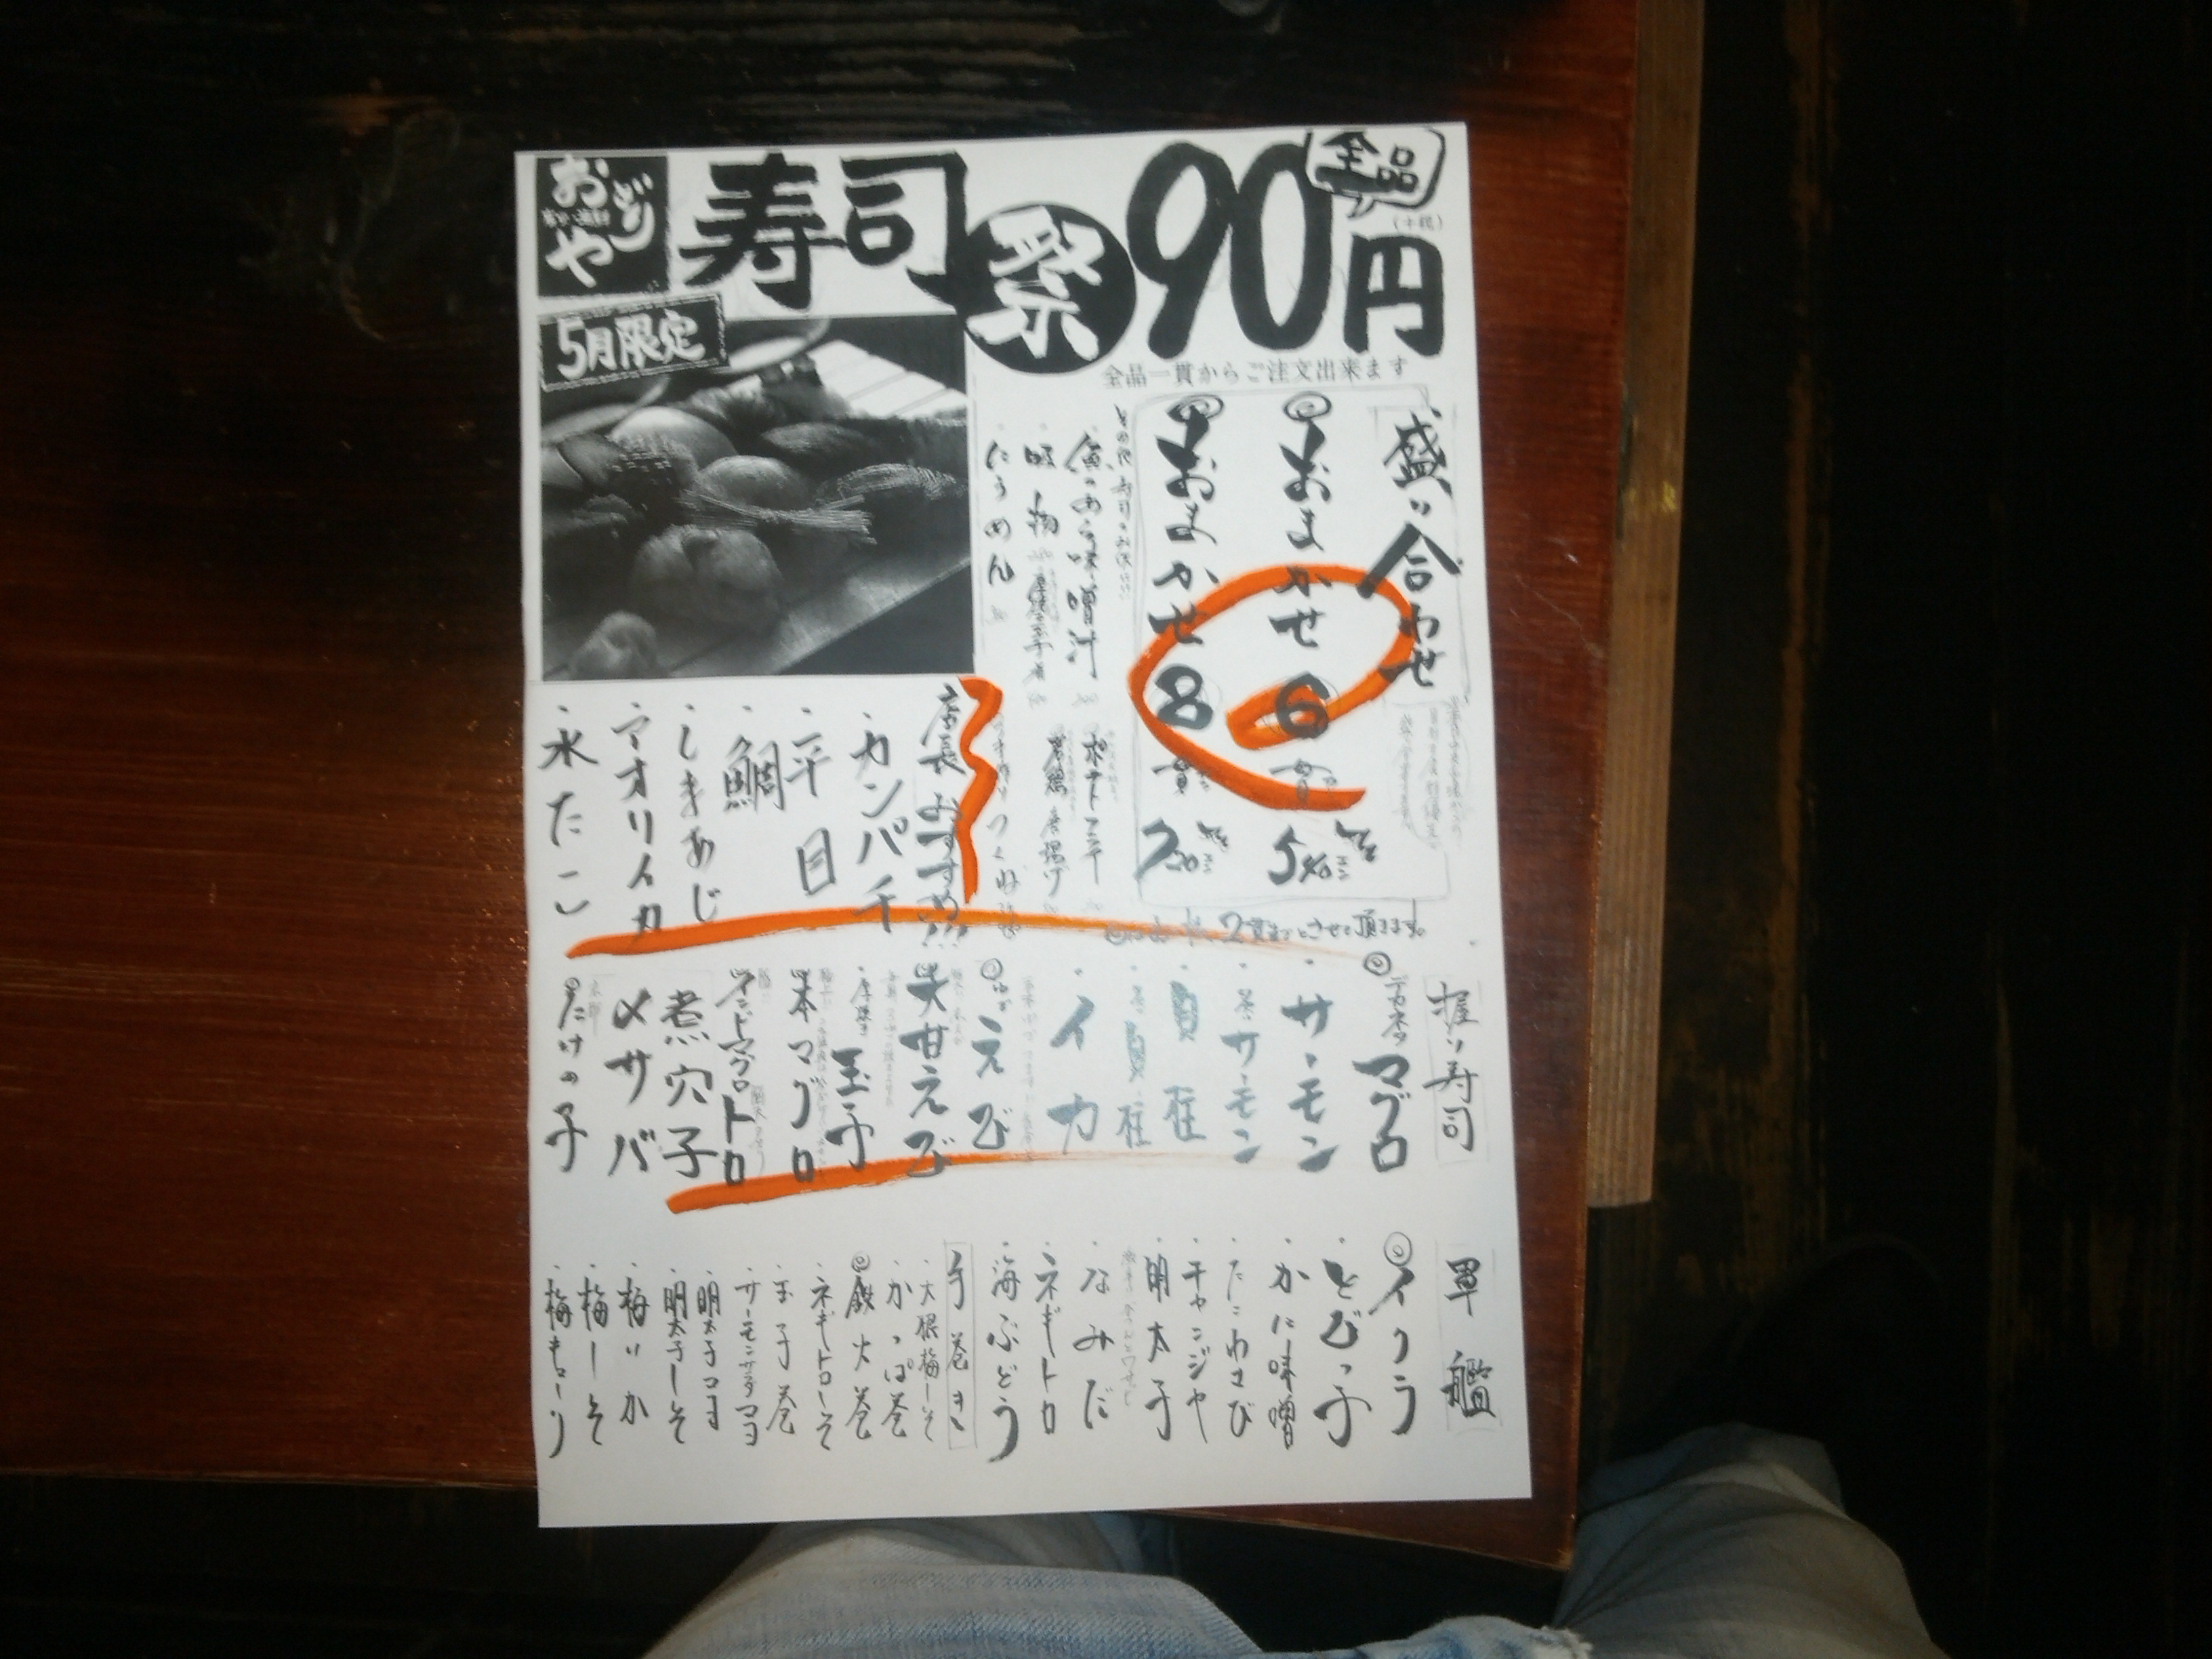 おどりや
寿司祭
全品
90円
(+税)
5月限定
全品一貫からご注文出来ます
盛り合わせ
おまかせ6貫
540
おまかせ8貫
720
魚のあら味噌汁
ポテトフライ
唐揚げ
にゅうめん
つくね
2貫までとさせて頂きます。
店長おすすめ!!!
・カンパチ
・平目
・鯛
・しまあじ
・アオリイカ
・水たこ
握り寿司
マグロ
・サーモン
サーモン
貝柱
貝柱
・イカ
えび
大甘えび
厚焼き玉子
本マグロ
インドマグロトロ
煮穴子
〆サバ
たけの子
軍艦
イクラ
・とびっ子
・かに味噌
・たこわさび
・チャンジャ
・明太子
・なみだ
・ネギトロ
・海ぶどう
手巻き
・大根梅しそ
・かっぱ巻
鉄火巻
・ネギトロしそ
・玉子巻
・サーモンサラダマヨ
・明太子マヨ
・明太子しそ
・梅いか
・梅しそ
・梅キューリ